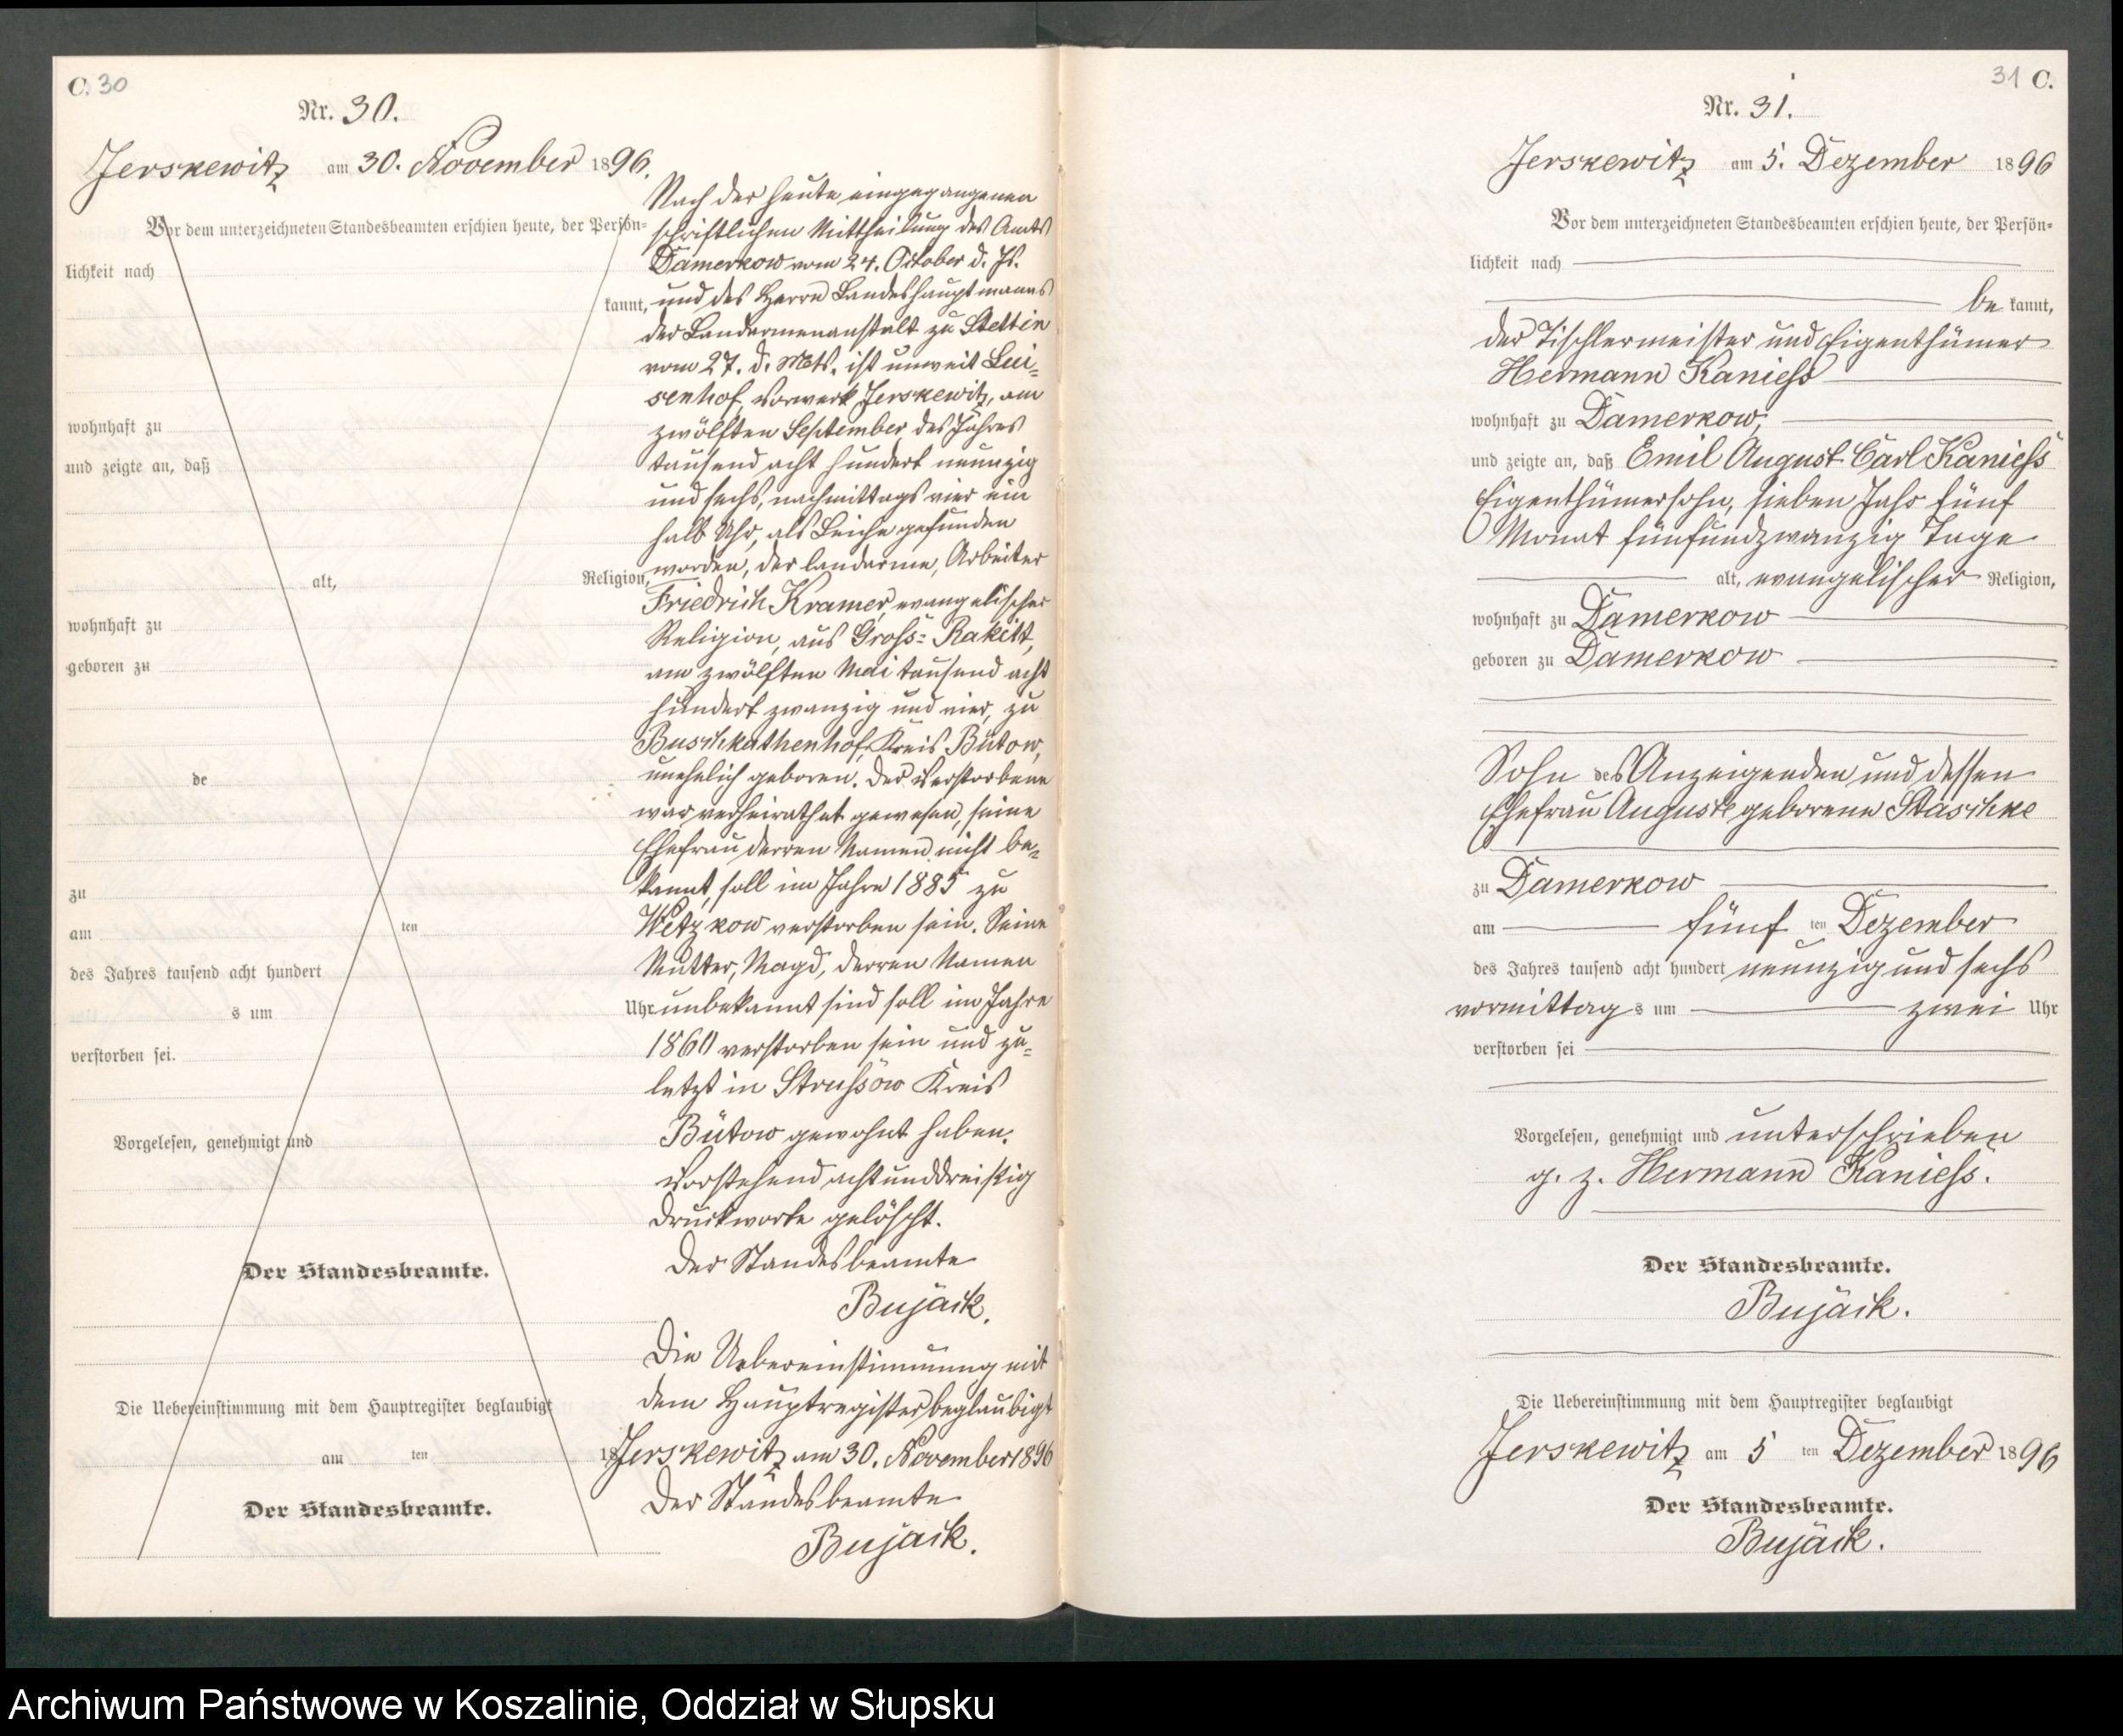 C. 30
Nr. 30.
Jerskewitz am 30. November 1896.
Vor dem unterzeichneten Standesbeamten erschien heute, der Persön-
lichkeit nach
kannt,
wohnhaft zu
und zeigte an, daß
alt, Religion,
wohnhaft zu
geboren zu
de
zu
am ten
des Jahres tausend acht hundert
s um Uhr
verstorben sei.
Vorgelesen, genehmigt und
Der Standesbeamte.
Die Uebereinstimmung mit dem Hauptregister beglaubigt
am ten 18
Der Standesbeamte.
Nach der heute eingegangenen
schriftlichen Mittheilung des Amts
Damerkow vom 24. October d. Js.
und des Herrn Landeshauptmanns
der Landarmenanstalt zu Stettin
vom 27. d. Mts. ist unweit Lui-
senhof, Vorwerk Jerskewitz, am
zwölften September des Jahres
tausend acht hundert neunzig
und sechs, nachmittags vier ein
halb Uhr, als Leiche gefunden
worden, der landarme, Arbeiter
Friedrich Kramer, evangelischer
Religion, aus Gross-Rakitt,
am zwölften Mai tausend acht
hundert zwanzig und vier, zu
Buschkathenhof, Kreis Bütow,
unehelich geboren. Der Verstorbene
war verheirathet gewesen, seine
Ehefrau derren Namen nicht be-
kannt, soll im Jahre 1885 zu
Wetzkow verstorben sein. Seine
Mutter, Magd, derren Namen
unbekannt sind soll im Jahre
1860 verstorben sein und zu-
letzt in Strussow Kreis
Bütow gewohnt haben.
Vorstehend achtunddreißig
Druckworte gelöscht.
Der Standesbeamte
Bujäck.
Die Uebereinstimmung mit
dem Hauptregister beglaubigt
Jerskewitz am 30. November 1896
Der Standesbeamte
Bujäck.
31 C.
Nr. 31.
Jerskewitz am 5. Dezember 1896
Vor dem unterzeichneten Standesbeamten erschien heute, der Persön-
lichkeit nach
be kannt,
der Tischlermeister und Eigenthümer
Hermann Kaniess
wohnhaft zu Damerkow,
und zeigte an, daß Emil August Carl Kaniess
Eigenthümersohn, sieben Jahr fünf
Monat fünfundzwanzig Tage
alt, evangelischer Religion,
wohnhaft zu Damerkow
geboren zu Damerkow
Sohn des Anzeigenden und dessen
Ehefrau Auguste geborene Staschke
zu Damerkow
am fünf ten Dezember
des Jahres tausend acht hundert neunzig und sechs
vormittag s um zwei Uhr
verstorben sei
Vorgelesen, genehmigt und unterschrieben
g. z. Hermann Kaniess.
Der Standesbeamte.
Bujäck.
Die Uebereinstimmung mit dem Hauptregister beglaubigt
Jerskewitz am 5 ten Dezember 1896
Der Standesbeamte.
Bujäck.
Archiwum Państwowe w Koszalinie, Oddział w Słupsku